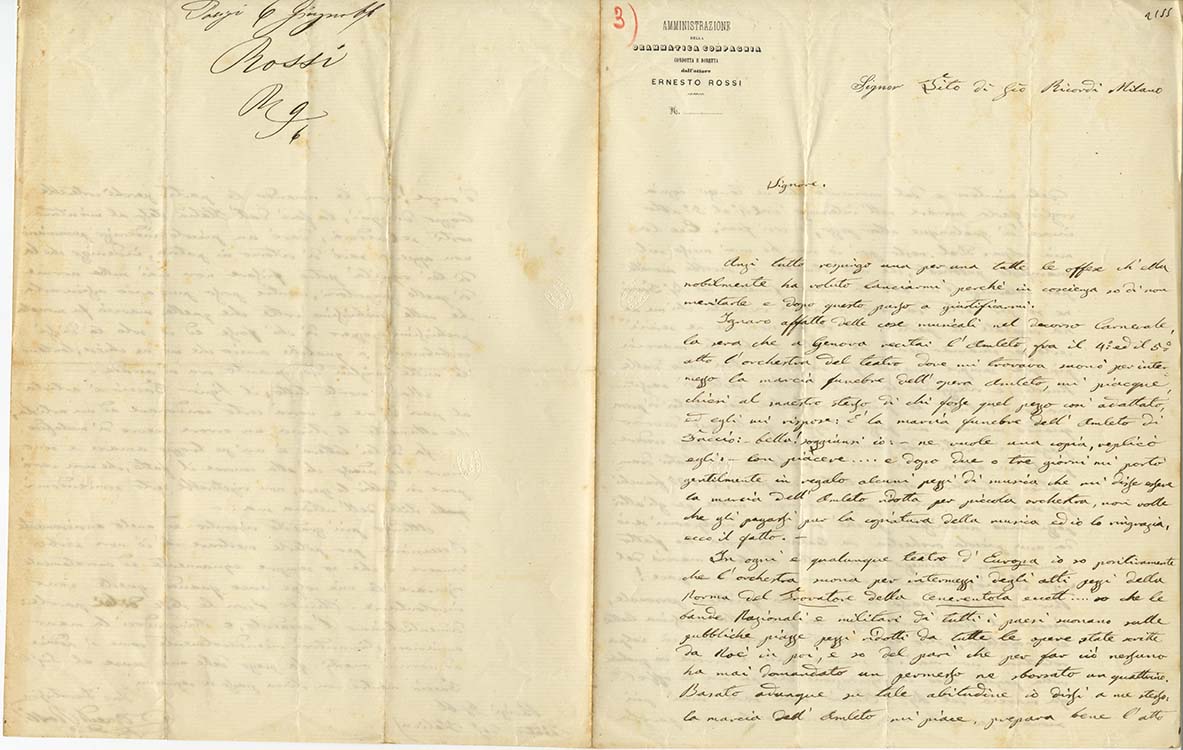 Parigi 6 Giugno 66
Rossi
R 9/6
3)
2155
AMMINISTRAZIONE
DELLA
DRAMMATICA COMPAGNIA
CONDOTTA E DIRETTA
dall'attore
ERNESTO ROSSI
N.
Signor Tito di Gio Ricordi Milano
Signore.
Anzi tutto respingo una per una tutte le offese ch'Ella
nobilmente ha voluto lanciarmi perchè in coscienza so di non
meritarle e dopo questo passo a giustificarmi.
Ignaro affatto delle cose musicali nel decorso Carnevale,
la sera che a Genova recitai l'Amleto fra il 4º ed il 5º
atto l'orchestra del teatro dove mi trovava suonò per inter-
mezzo la marcia funebre dell'opera Amleto, mi piacque,
chiesi al maestro stesso di chi fosse quel pezzo così adattato,
ed egli mi rispose: È la marcia funebre dell'Amleto di
Faccio: - bella! soggiunsi io: - ne vuole una copia, replicò
egli: - con piacere.... e dopo due o tre giorni mi portò
gentilmente in regalo alcuni pezzi di musica che mi disse essere
la marcia dell'Amleto ridotta per piccola orchestra, non volle
che gli pagassi per la copiatura della musica ed io lo ringraziai,
ecco il fatto. -
In ogni e qualunque teatro d'Europa io so positivamente
che l'orchestra suona per intermezzi degli atti pezzi della
Norma del Trovatore della Cenerentola eccett.... so che le
bande Nazionali e militari di tutti i paesi suonano sulle
pubbliche piazze pezzi ridotti da tutte le opere state scritte
da Noè in poi, e so del pari che per far ciò nessuno
ha mai domandato un permesso ne sborsato un quattrino.
Basato adunque su tale abitudine io dissi a me stesso:
la marcia dell'Amleto mi piace, prepara bene l'atto